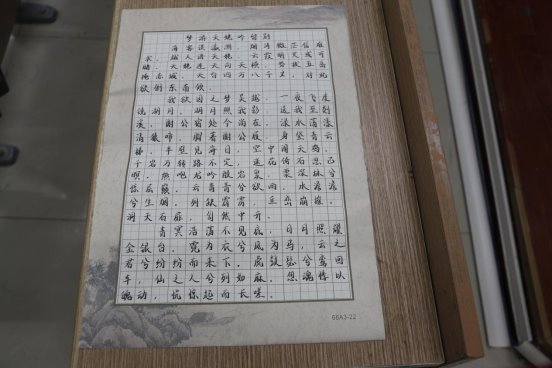 梦游天姥吟留别
海客谈瀛洲，烟涛微茫信难
求。越人语天姥，云霞明灭或可
睹。天姥连天向天横，势拔五岳
掩赤城。天台四万八千丈，对此
欲倒东南倾。
我欲因之梦吴越，一夜飞度
镜湖月。湖月照我影，送我至剡
溪。谢公宿处今尚在，渌水荡漾
清猿啼。脚著谢公屐，身登青云
梯。半壁见海日，空中闻天鸡。
千岩万转路不定，迷花倚石忽已
暝。熊咆龙吟殷岩泉，栗深林兮
惊层巅。云青青兮欲雨，水澹澹
兮生烟。列缺霹雳，丘峦崩摧。
洞天石扉，訇然中开。
青冥浩荡不见底，日月照耀
金银台。霓为衣兮风为马，云之
君兮纷纷而来下。虎鼓瑟兮鸾回
车，仙之人兮列如麻。忽魂悸以
魄动，恍惊起而长嗟。
66A3-22